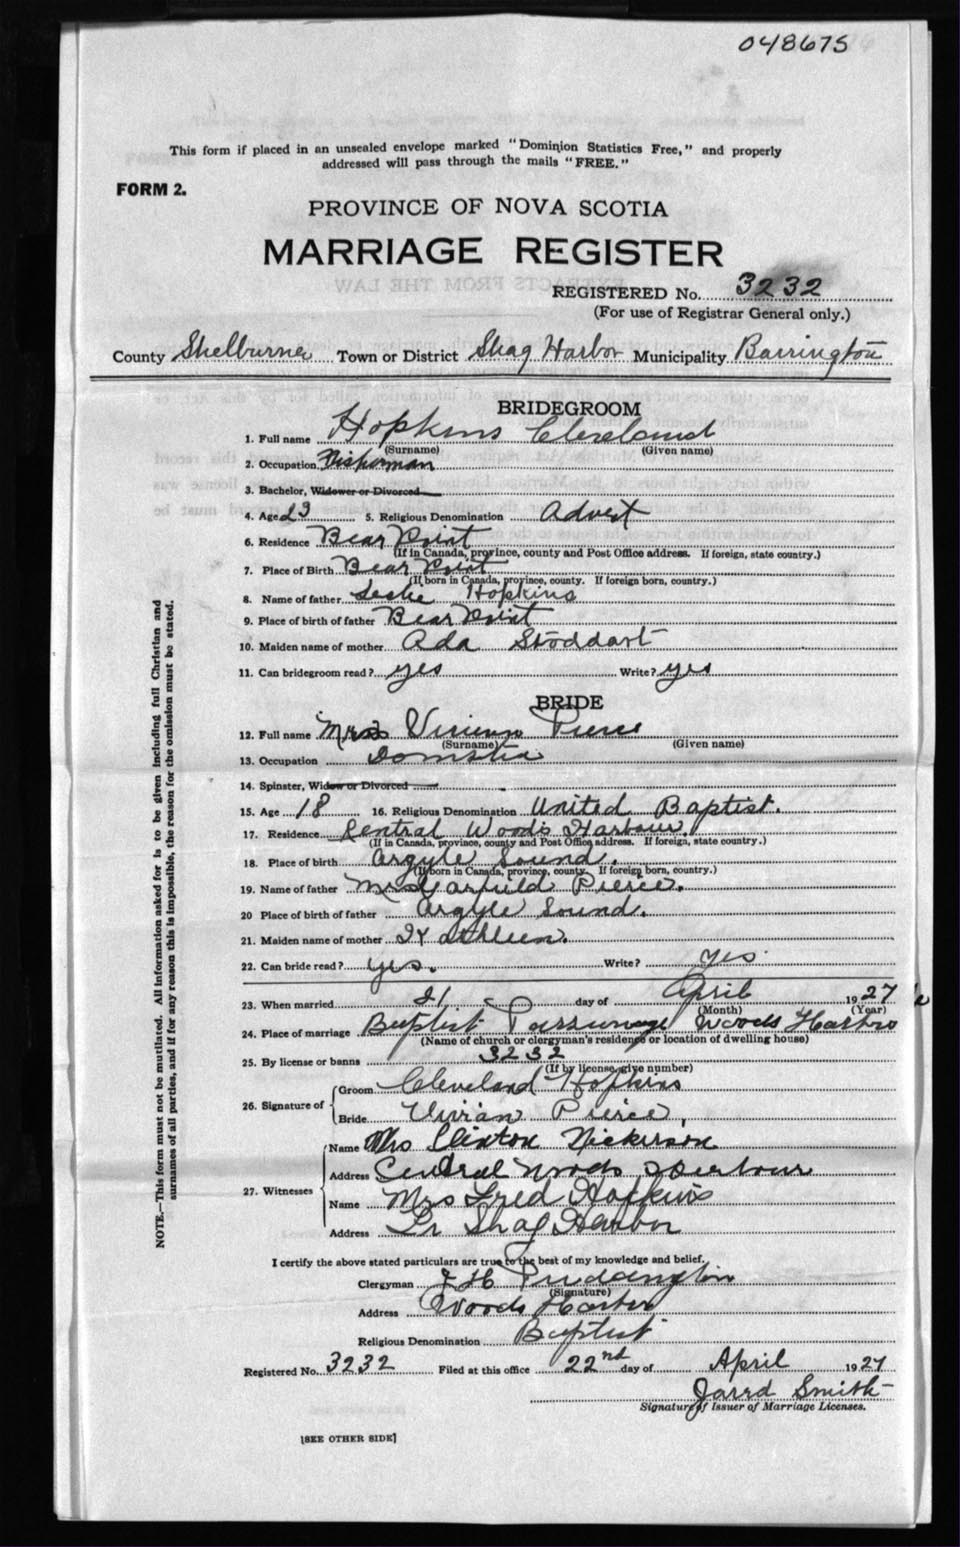 048675
This form if placed in an unsealed envelope marked "Dominion Statistics Free," and properly
addressed will pass through the mails "FREE."
FORM 2.
PROVINCE OF NOVA SCOTIA
MARRIAGE REGISTER
REGISTERED No. 3232
(For use of Registrar General only.)
County Shelburne Town or District Shag Harbor Municipality Barrington
BRIDEGROOM
1. Full name Hopkins Cleveland
(Surname) (Given name)
2. Occupation Fisherman
3. Bachelor, Widower or Divorced
4. Age 23 5. Religious Denomination Advent
6. Residence Bear Point
(If in Canada, province, county and Post Office address. If foreign, state country.)
7. Place of Birth Bear Point
(If born in Canada, province, county. If foreign born, country.)
8. Name of father Leslie Hopkins
9. Place of birth of father Bear Point
10. Maiden name of mother Ada Stoddart
11. Can bridegroom read? yes Write? yes
BRIDE
12. Full name Pierce
(Surname) (Given name)
13. Occupation Domstic
14. Spinster, Widow or Divorced
15. Age 18 16. Religious Denomination United Baptist.
17. Residence Central Woods Harbour.
(If in Canada, province, county and Post Office address. If foreign, state country.)
18. Place of birth Argyle Sound.
(If born in Canada, province, county. If foreign born, country.)
19. Name of father Garfield Pierce.
20 Place of birth of father Argyle Sound.
21. Maiden name of mother
22. Can bride read? yes. Write? yes
23. When married 21 day of April 1927
(Month) (Year)
24. Place of marriage Baptist Parsonage Woods Harbor
(Name of church or clergyman's residence or location of dwelling house)
25. By license or banns 3232
(If by license, give number)
26. Signature of Groom Cleveland Hopkins
Bride Vivian Pierce,
27. Witnesses Name Mrs Clinton Nickerson
Address Central Woods Harbour
Name Mrs Fred Hopkins
Address Shag Harbor
I certify the above stated particulars are true to the best of my knowledge and belief.
Clergyman Puddington
(Signature)
Address Woods Harbor
Religious Denomination Baptist
Registered No. 3232 Filed at this office 22nd day of April 1927
Jarrd Smith
Signature of Issuer of Marriage Licenses.
[SEE OTHER SIDE]
NOTE.—This form must not be mutilated. All information asked for is to be given including full Christian and
surnames of all parties, and if for any reason this is impossible, the reason for the omission must be stated.